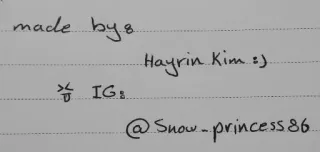 made by:
Hayrin Kim :)
IG:
@Snow_princess86